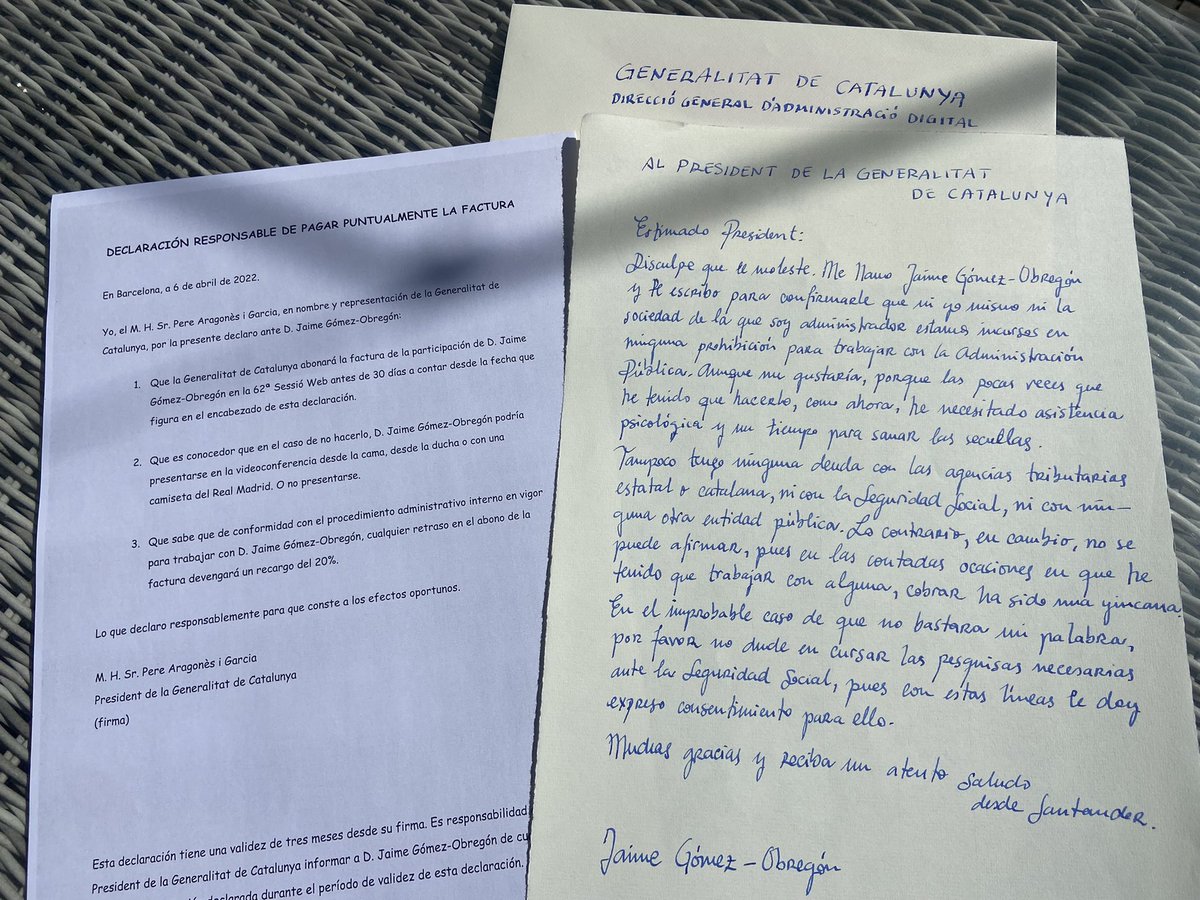 GENERALITAT DE CATALUNYA
DIRECCIÓ GENERAL D'ADMINISTRACIÓ DIGITAL
DECLARACIÓN RESPONSABLE DE PAGAR PUNTUALMENTE LA FACTURA
En Barcelona, a 6 de abril de 2022.
Yo, el M. H. Sr. Pere Aragonès i Garcia, en nombre y representación de la Generalitat de
Catalunya, por la presente declaro ante D. Jaime Gómez-Obregón:
1. Que la Generalitat de Catalunya abonará la factura de la participación de D. Jaime
Gómez-Obregón en la 62ª Sessió Web antes de 30 días a contar desde la fecha que
figura en el encabezado de esta declaración.
2. Que es conocedor que en el caso de no hacerlo, D. Jaime Gómez-Obregón podría
presentarse en la videoconferencia desde la cama, desde la ducha o con una
camiseta del Real Madrid. O no presentarse.
3. Que sabe que de conformidad con el procedimiento administrativo interno en vigor
para trabajar con D. Jaime Gómez-Obregón, cualquier retraso en el abono de la
factura devengará un recargo del 20%.
Lo que declaro responsablemente para que conste a los efectos oportunos.
M. H. Sr. Pere Aragonès i Garcia
President de la Generalitat de Catalunya
(firma)
Esta declaración tiene una validez de tres meses desde su firma. Es responsabilidad
President de la Generalitat de Catalunya informar a D. Jaime Gómez-Obregón de cu
declarada durante el período de validez de esta declaración.
AL PRESIDENT DE LA GENERALITAT
DE CATALUNYA
Estimado President:
Disculpe que le moleste. Me llamo Jaime Gómez-Obregón
y le escribo para confirmarle que ni yo mismo ni la
sociedad de la que soy administrador estamos incursos en
ninguna prohibición para trabajar con la Administración
Pública. Aunque me gustaría, porque las pocas veces que
he tenido que hacerlo, como ahora, he necesitado asistencia
psicológica y un tiempo para sanar las secuelas.
Tampoco tengo ninguna deuda con las agencias tributarias
estatal o catalana, ni con la Seguridad Social, ni con nin-
guna otra entidad pública. Lo contrario, en cambio, no se
puede afirmar, pues en las contadas ocasiones en que he
tenido que trabajar con alguna, cobrar ha sido una yincana.
En el improbable caso de que no bastara mi palabra,
por favor no dude en cursar las pesquisas necesarias
ante la Seguridad Social, pues con estas líneas le doy
expreso consentimiento para ello.
Muchas gracias y reciba un atento saludo
desde Santander.
Jaime Gómez-Obregón